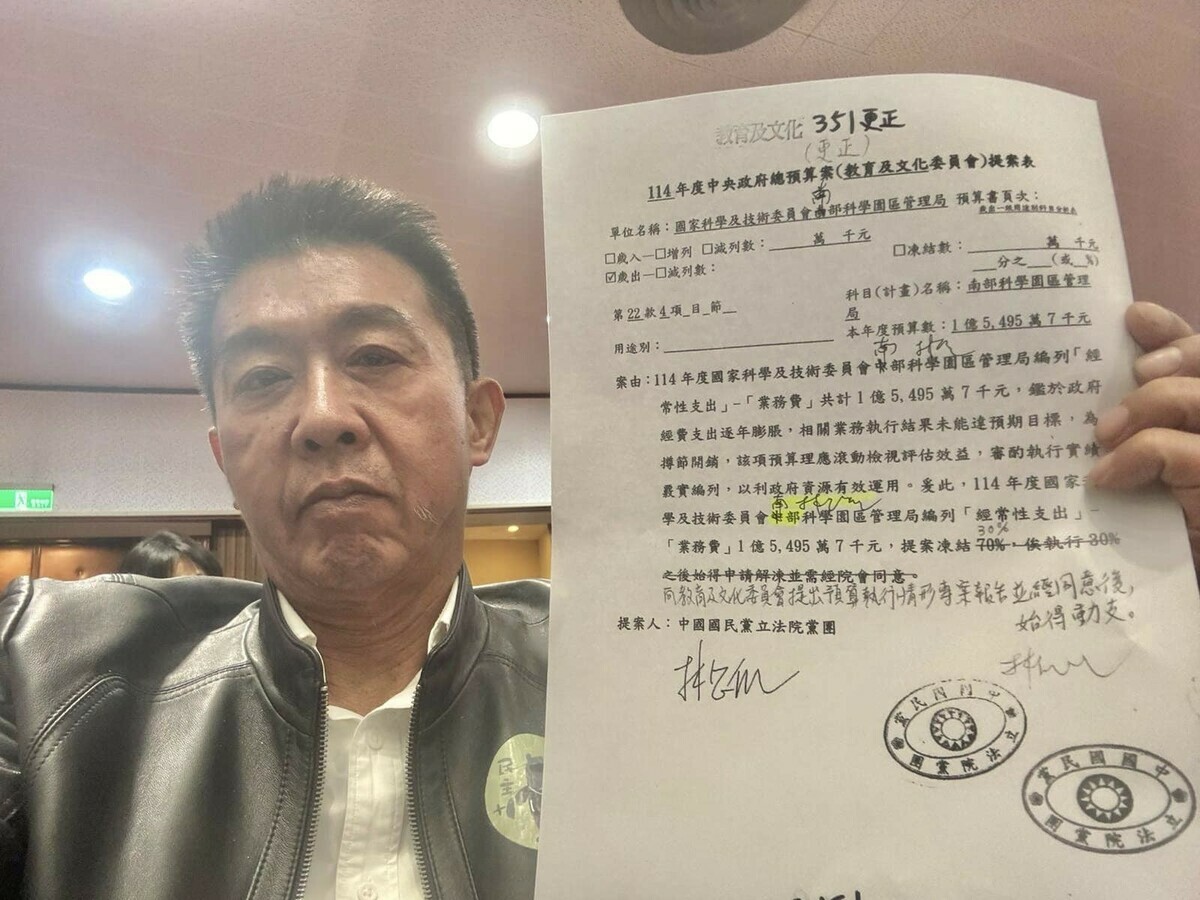 教育及文化 351更正
(更正)
114年度中央政府總預算案(教育及文化委員會)提案表
南
單位名稱：國家科學及技術委員會中部科學園區管理局 預算書頁次：
歲出一級用途別科目分析表
□歲入—□增列 □減列數：　萬　千元 □凍結數：　萬　千元
☑歲出—□減列數： __分之__(或__%)
第22款4項_目_節__ 科目(計畫)名稱：南部科學園區管理局
用途別： 本年度預算數：1億5,495萬7千元
南
案由：114年度國家科學及技術委員會中部科學園區管理局編列「經
常性支出」-「業務費」共計1億5,495萬7千元，鑑於政府
經費支出逐年膨脹，相關業務執行結果未能達預期目標，為
撙節開銷，該項預算理應滾動檢視評估效益，審酌執行實績
覈實編列，以利政府資源有效運用。爰此，114年度國家
南
學及技術委員會中部科學園區管理局編列「經常性支出」-
30%
「業務費」1億5,495萬7千元，提案凍結70%，俟執行30%
之後始得申請解凍並需經院會同意。
向教育及文化委員會提出預算執行情形專案報告並經同意後，
始得動支。
提案人：中國國民黨立法院黨團
中國國民黨
立法院黨團
中國國民黨
立法院黨團
民主